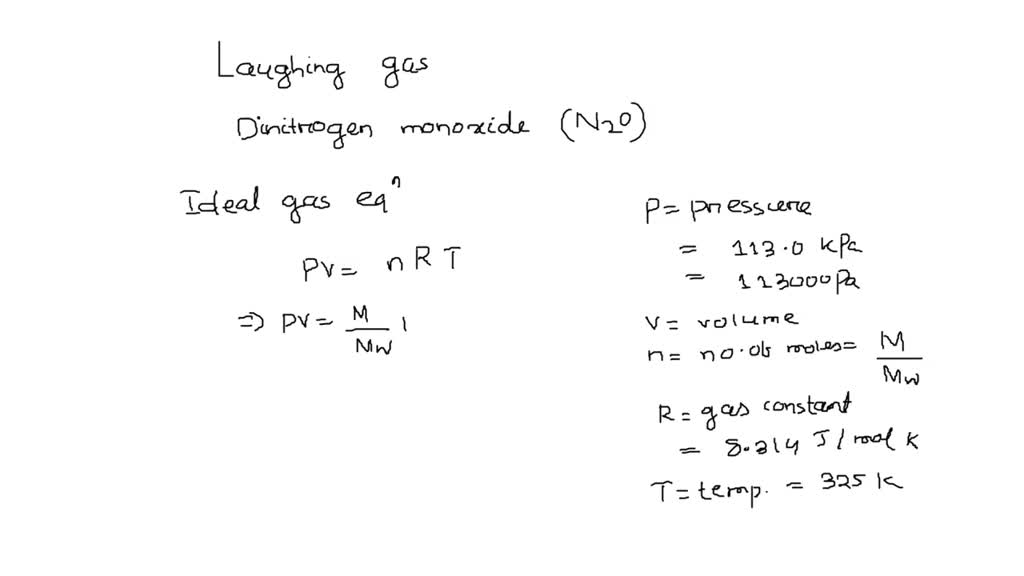 Laughing gas
Dinitrogen monoxide (N2O)
Ideal gas eqⁿ
PV = nRT
⇒ PV = M/Mw
P = pressure
= 113.0 kPa
= 113000Pa
V = volume
n = no. of moles = M/Mw
R = gas constant
= 8.314 J/mol K
T = temp. = 325 K